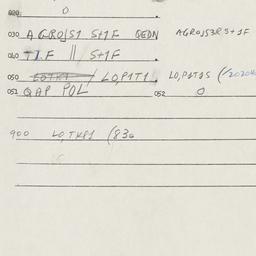 020 0
030 AGROJS1 S+1F QEDN AGROJS3R S+1F
040 TIF || S+1F
050 LO,P1T1 LO,P1T1S (
052 QAP POL 052 0
900 LO,TKP1 (836